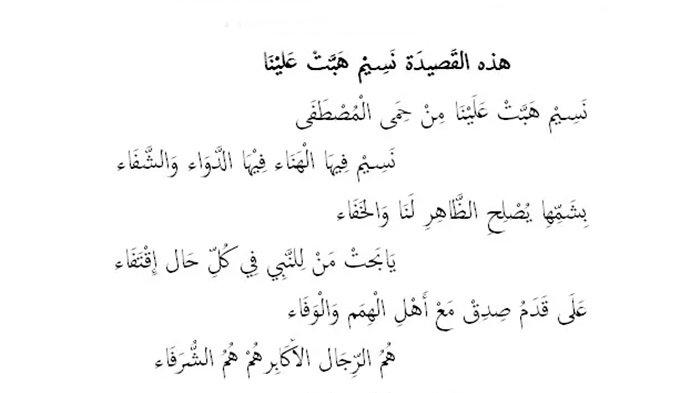 هذه القَصِيدَة نَسِيْم هَبَّتْ عَلَيْنَا
نَسِيْم هَبَّتْ عَلَيْنَا مِنْ حِمَى الْمُصْطَفَى
نَسِيْم فِيهَا الْهَنَاء فِيْهَا الدَّوَاء وَالشَّفَاء
بِشَمِّهِا يُصْلِح الظَّاهِرِ لَنَا وَالخَفَاء
يَابَحَتْ مَنْ لِلنَّبِي فِي كُلِّ حَال إِقْتَفَاء
عَلَى قَدَمُ صِدِقْ مَعْ أَهْلِ الْهِمَم وَالْوَفَاء
هُمُ الرِّجَال الأَكَابِر هُمْ هُمُ الشُّرَفَاء